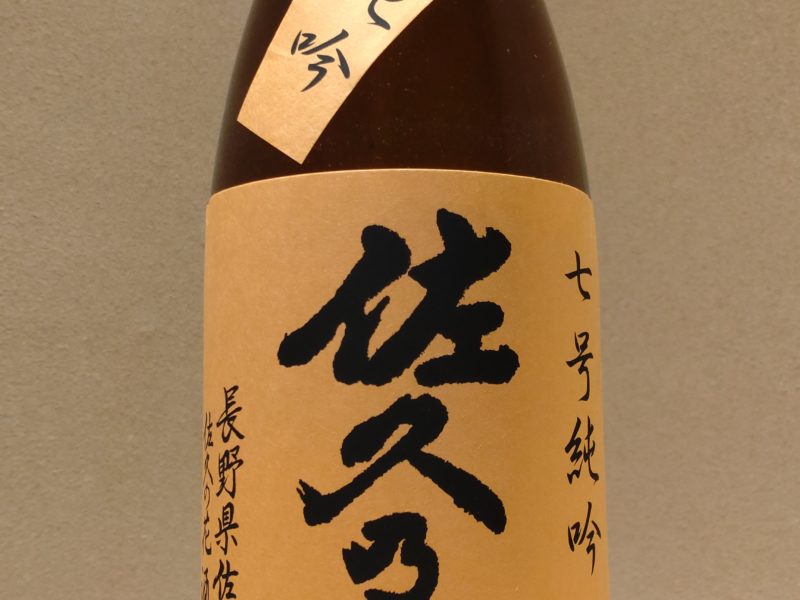 吟
七号純吟
佐久乃
長野県佐
佐久の花酒